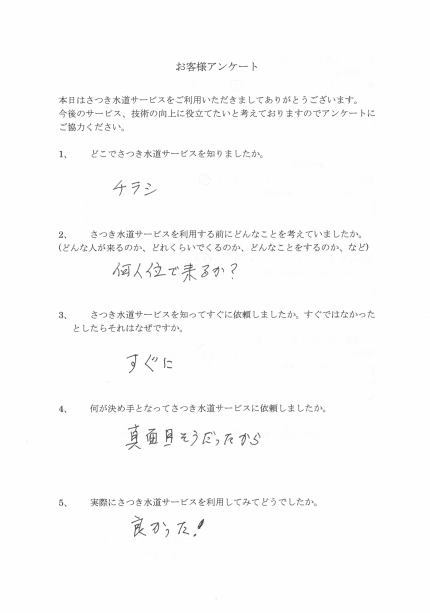 お客様アンケート
本日はさつき水道サービスをご利用いただきましてありがとうございます。
今後のサービス、技術の向上に役立てたいと考えておりますのでアンケートに
ご協力ください。
1、 どこでさつき水道サービスを知りましたか。
チラシ
2、 さつき水道サービスを利用する前にどんなことを考えていましたか。
(どんな人が来るのか、どれくらいでくるのか、どんなことをするのか、など)
何人位で来るか?
3、 さつき水道サービスを知ってすぐに依頼しましたか。すぐではなかった
としたらそれはなぜですか。
すぐに
4、 何が決め手となってさつき水道サービスに依頼しましたか。
真面目そうだったから
5、 実際にさつき水道サービスを利用してみてどうでしたか。
良かった!